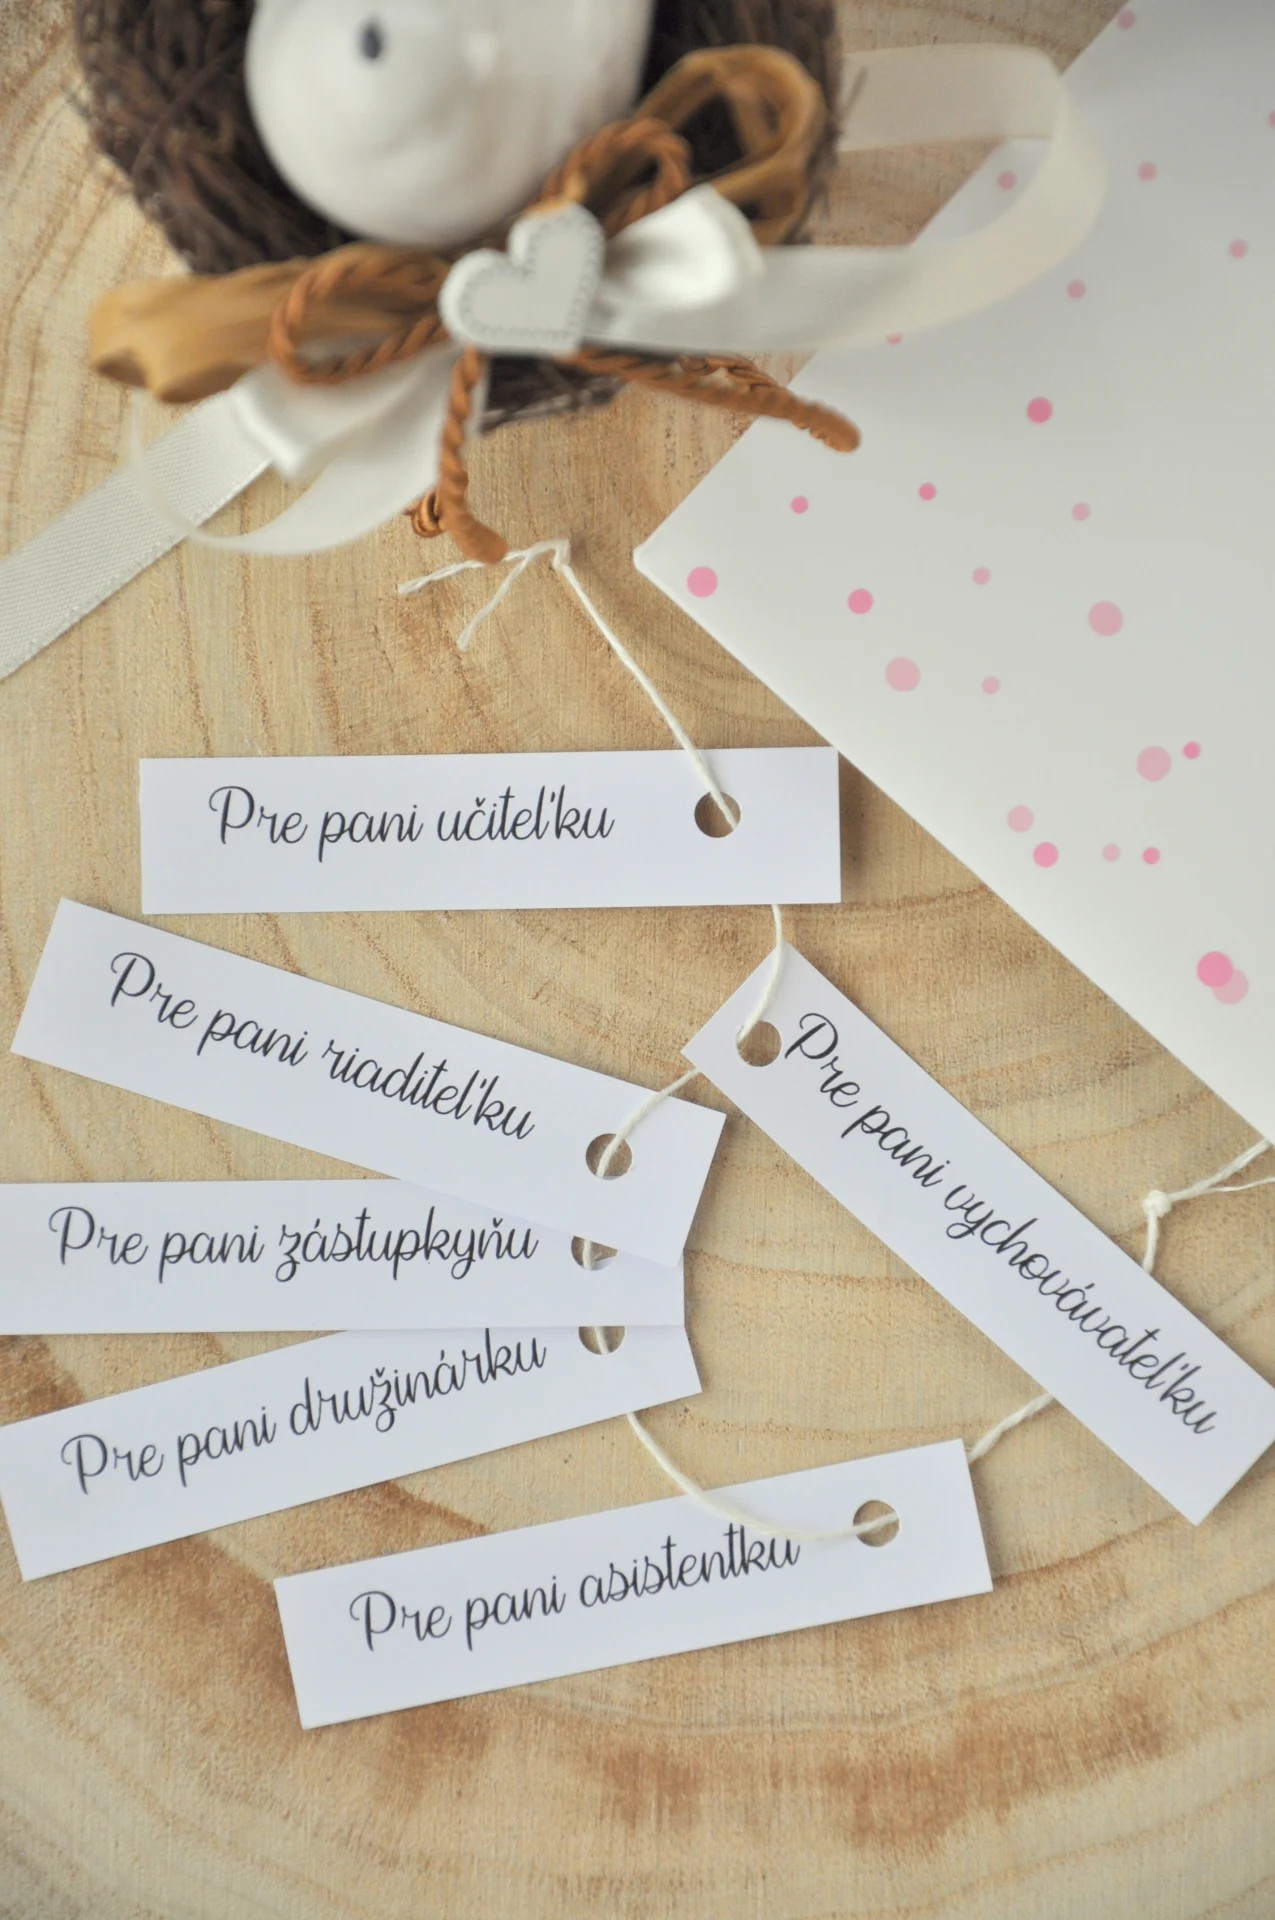 Pre pani učiteľku
Pre pani riaditeľku
Pre pani vychovávateľku
Pre pani zástupkyňu
Pre pani družinárku
Pre pani asistentku